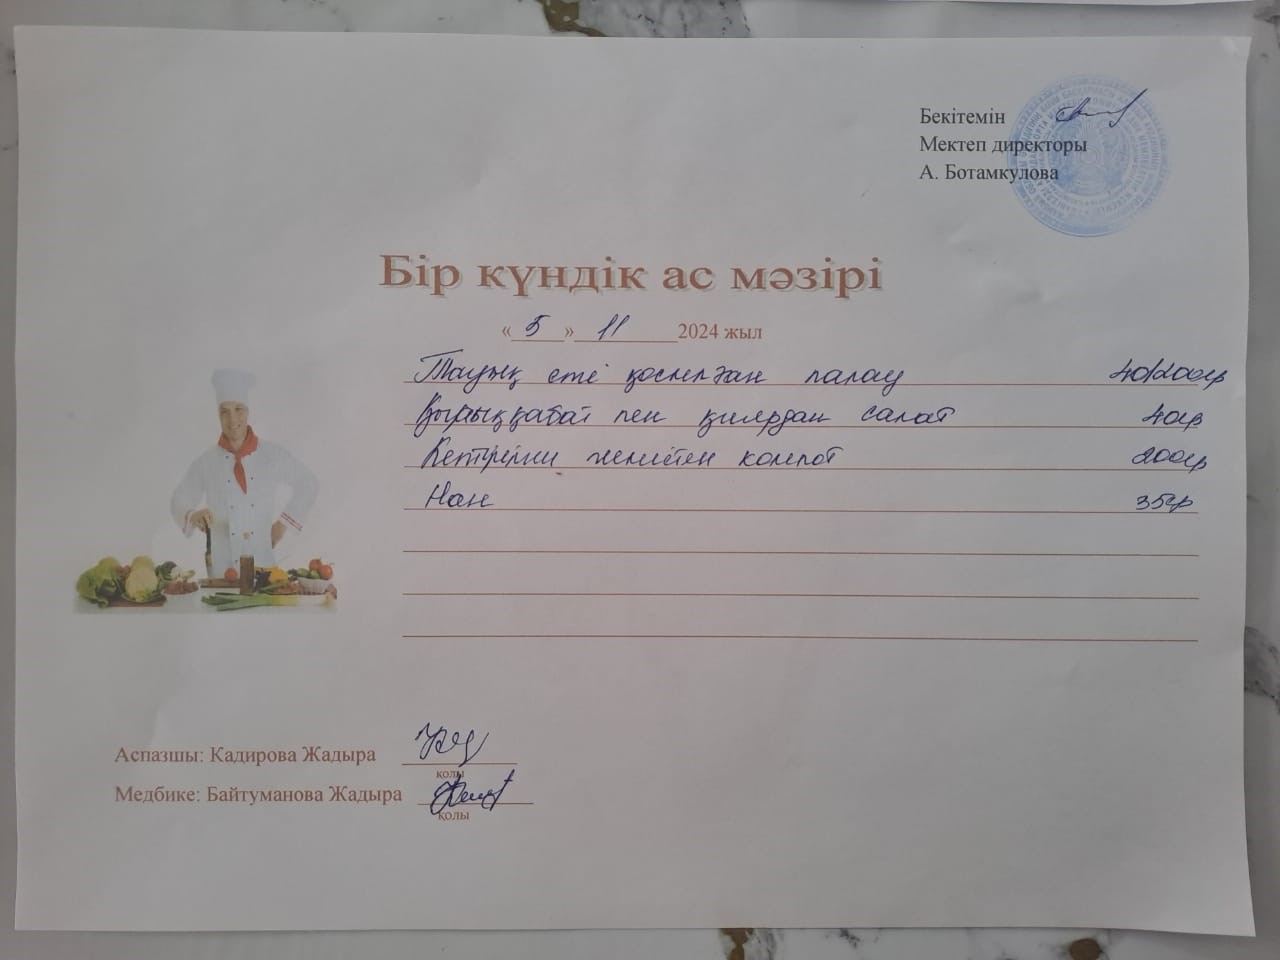 Бекітемін
Мектеп директоры
А. Ботамкулова
Бір күндік ас мәзірі
« 5 » 11 2024 жыл
Тауық еті қосылған палау 40/200гр
Қырыққабат пен қиярдан салат 40гр
Кептірілген жемістен компот 200гр
Нан 35гр
Аспазшы: Кадирова Жадыра
қолы
Медбике: Байтуманова Жадыра
қолы